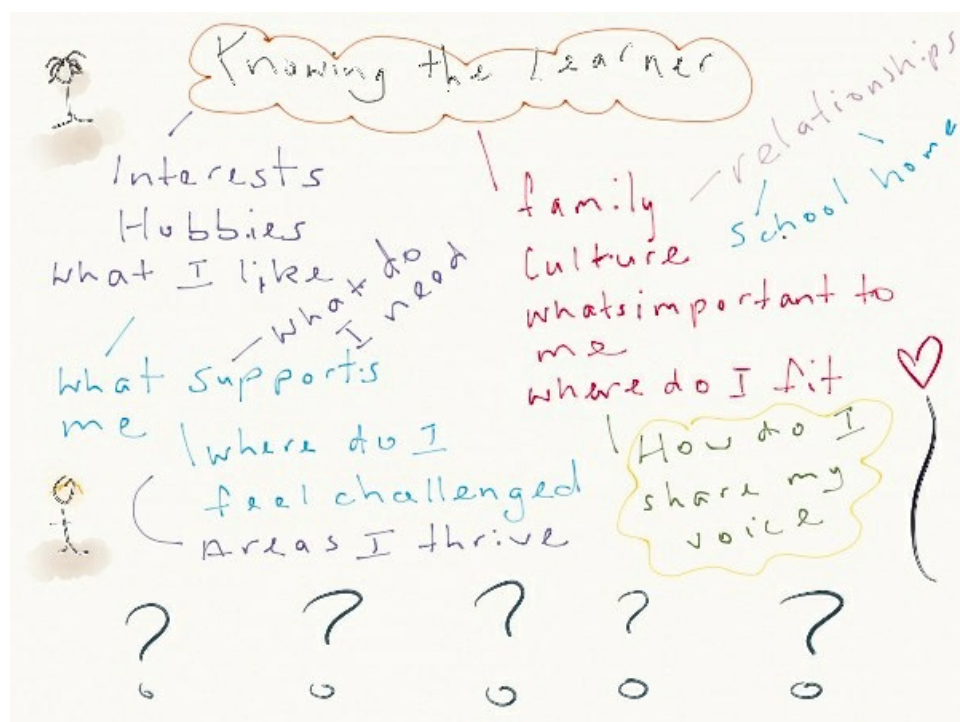 Knowing the Learner
Interests
Hobbies
What I like
what do
I need
what supports
me
where do I
feel challenged
Areas I thrive
family
Culture
whatsimportant to
me
where do I fit
relationships
School home
How do I
share my
voice
? ? ? ? ?